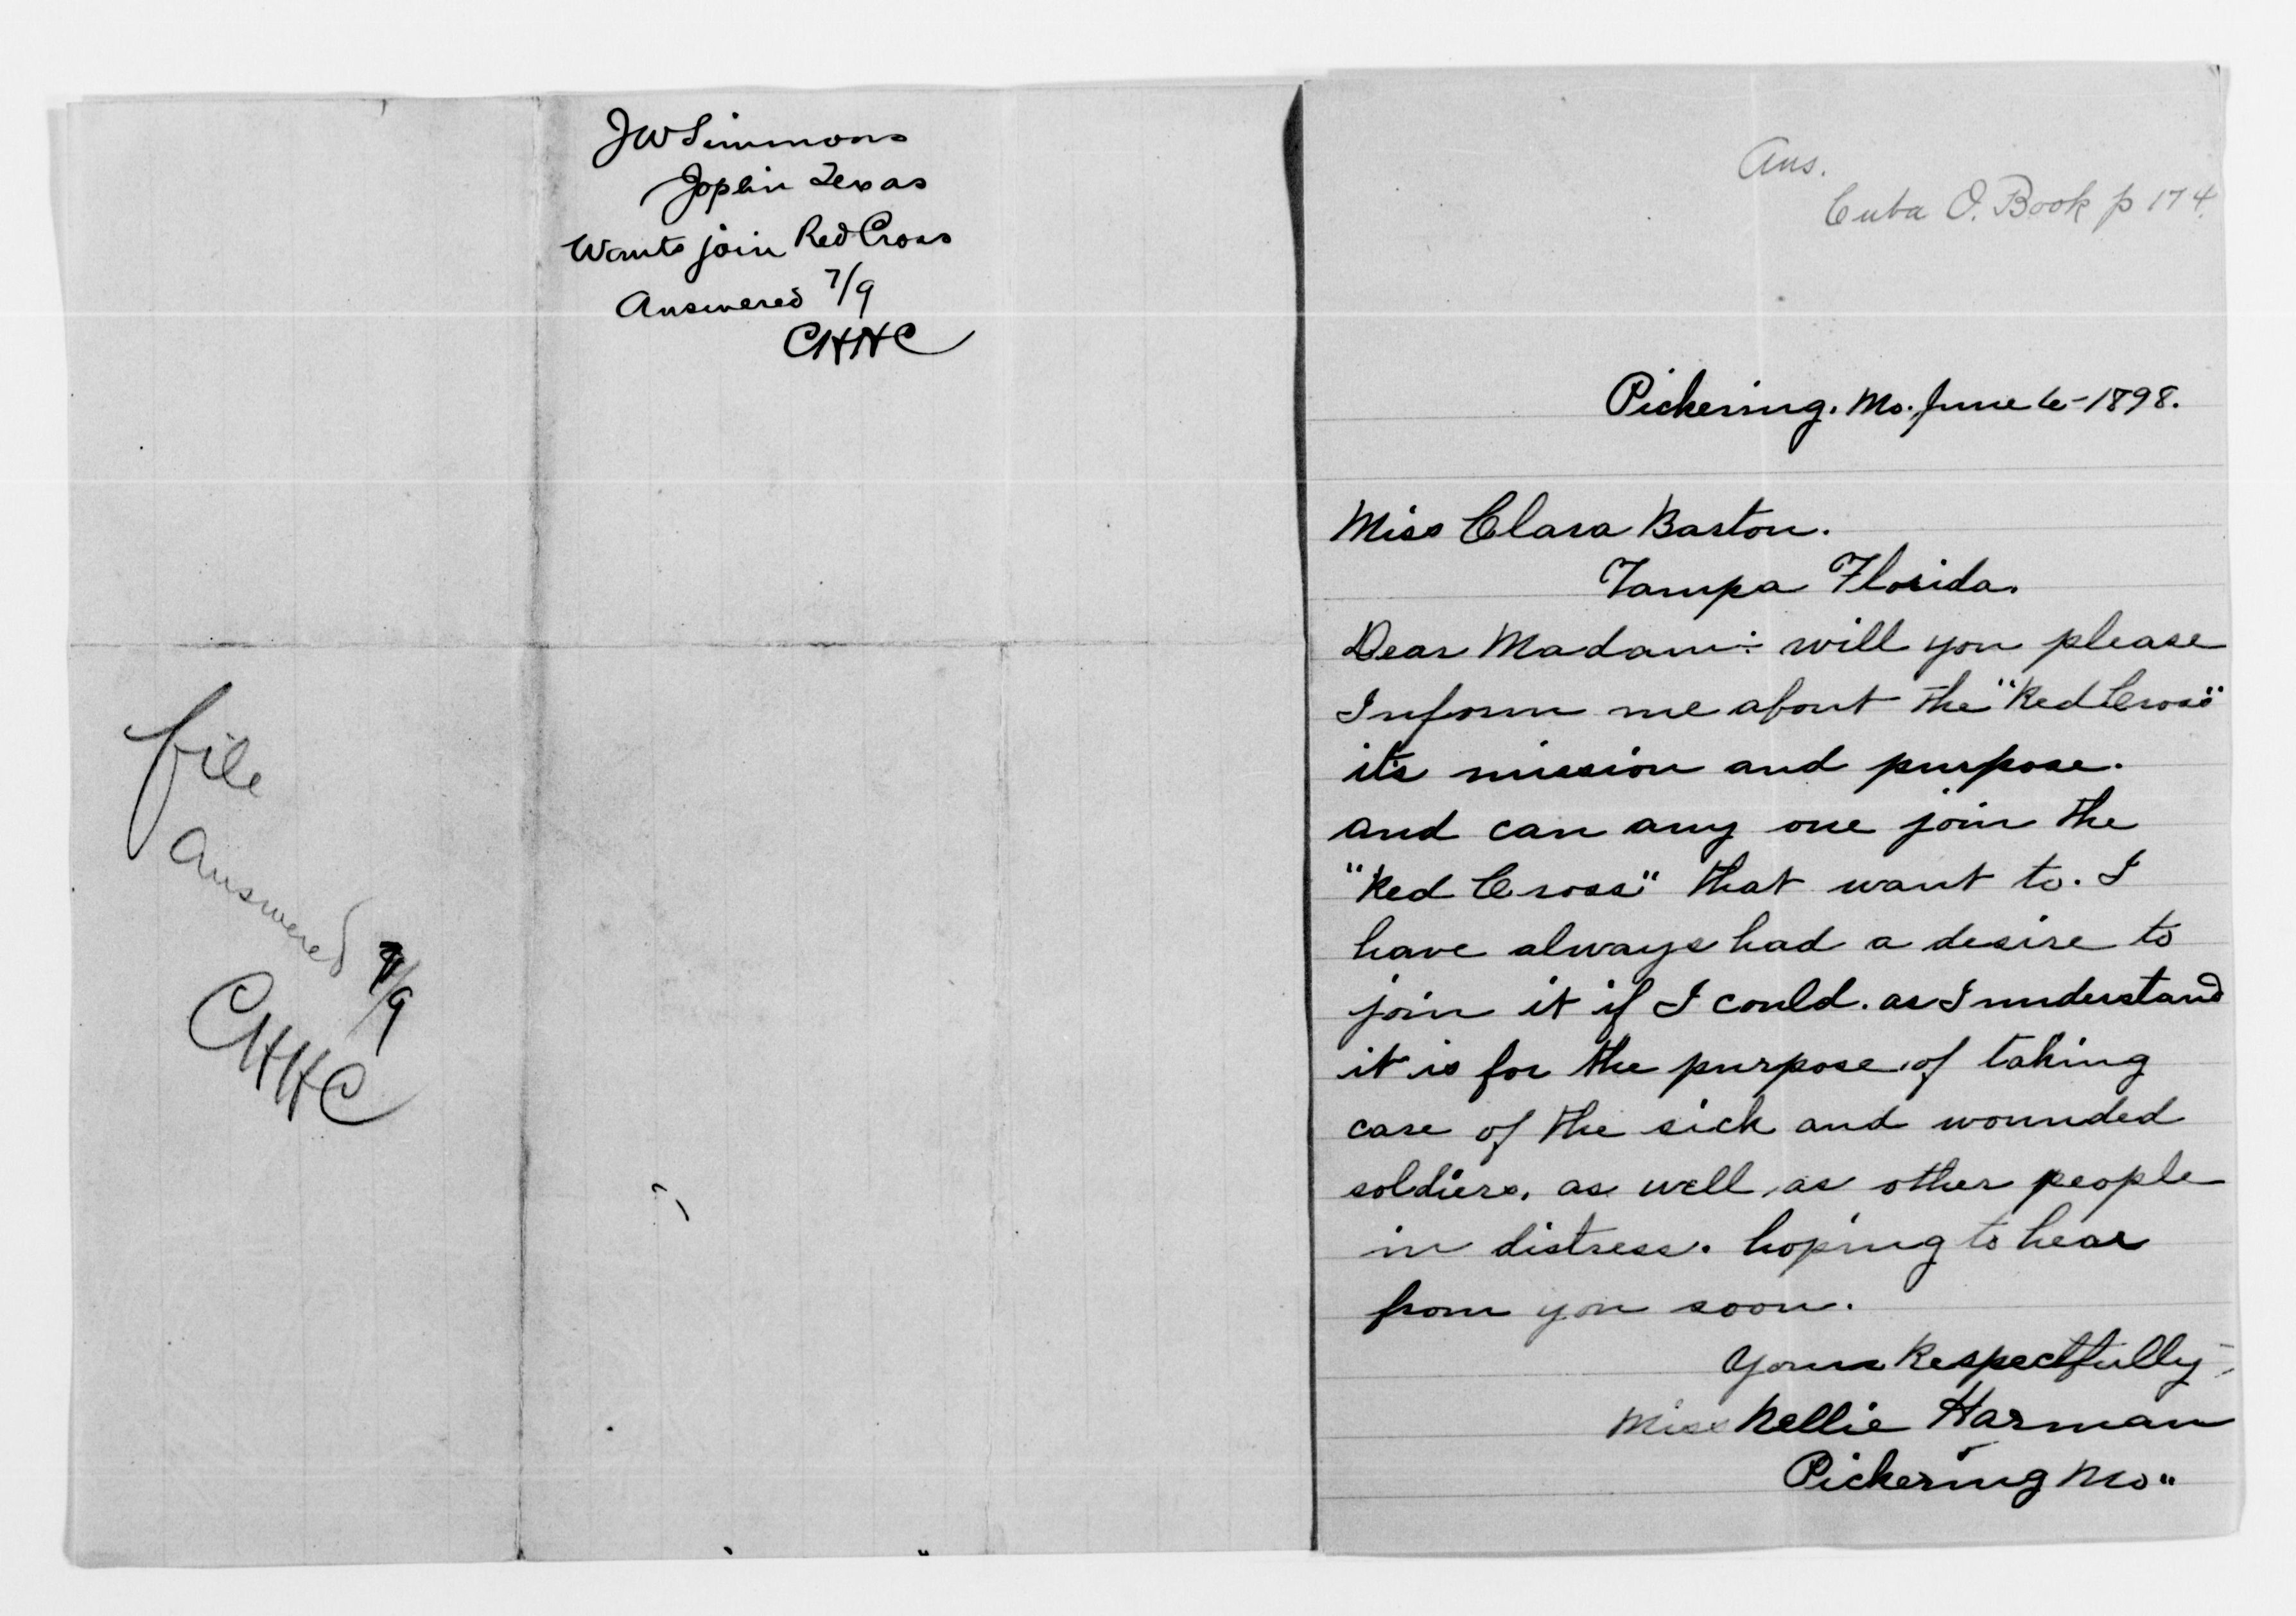 JW Simmons
Joplin Texas
Wants join Red Cross
Answered 7/9
CHHC
file
Answered 7/9
CHHC
Ans.
Cuba O. Book p 174.
Pickering. Mo. June 6-1898.
Miss Clara Barton.
Tampa Florida.
Dear Madam:- will you please
Inform me about the "Red Cross"
it's mission and purpose.
and can any one join the
"Red Cross" that want to. I
have always had a desire to
join it if I could. as I understand
it is for the purpose of taking
care of the sick and wounded
soldiers. as well as other people
in distress. hoping to hear
from you soon.
Yours Respectfully,
Miss Nellie Harman
Pickering Mo"